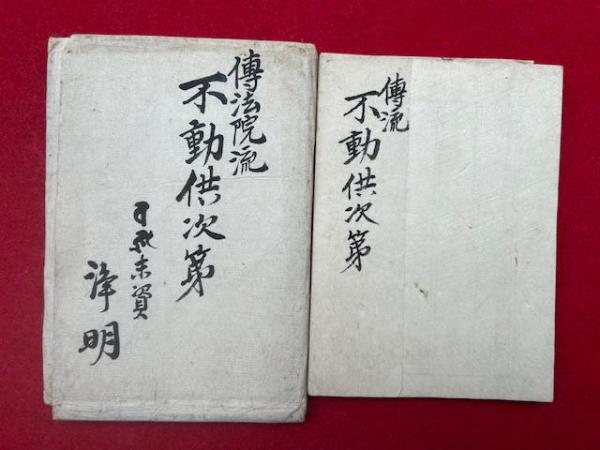 傳法院流
不動供次第
末資
淨明
傳流
不動供次第